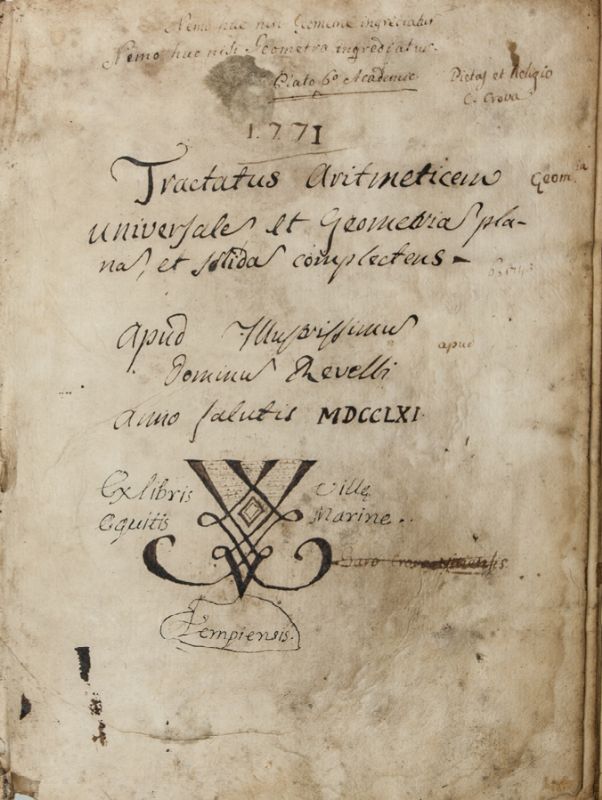 Nemo huc nisi Geometre ingrediatur
Nemo huc nisi Geometra ingrediatur.
Plato Academie
Pietas et Religio
C. Crova
1771
Tractatus Aritmeticam
Geom
universales et Geometrias pla-
nas, et solidas complectens -
apud Illustrissimus
apud
Dominus Revelli
anno salutis MDCCLXI
Ex libris Villę
Equitis Marine.
Tempiensis.